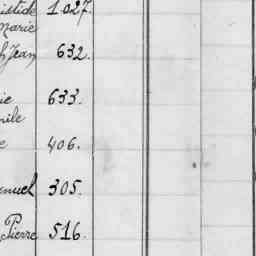 istide 1.027.
Marie
h Jean 632.
ie 633.
mile
e 406.
anuel 305.
Pierre 516.